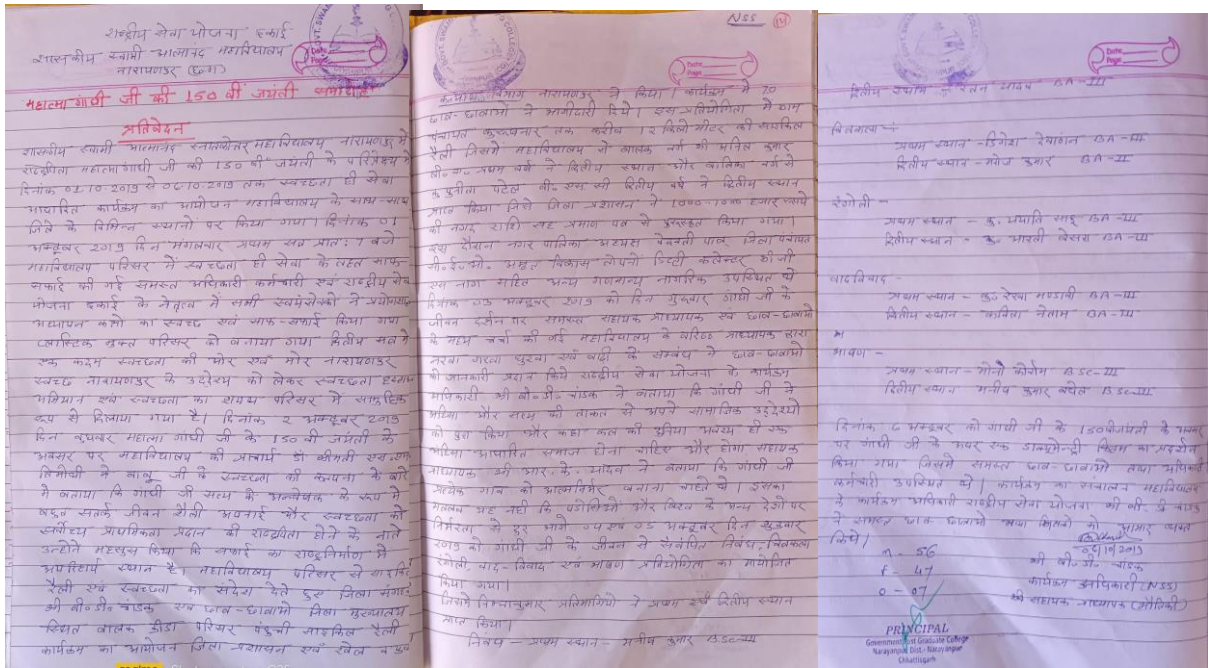 राष्ट्रीय सेवा योजना इकाई
शासकीय स्वामी आत्मानंद महाविद्यालय
नारायणपुर (छ.ग.)
Date
Page
महात्मा गांधी जी की 150 वीं जयंती समारोह
प्रतिवेदन
शासकीय स्वामी आत्मानंद स्नातकोत्तर महाविद्यालय नारायणपुर में
राष्ट्रपिता महात्मा गांधी जी की 150 वीं जयंती के परिप्रेक्ष्य में
दिनांक 01-10-2019 से 06-10-2019 तक स्वच्छता ही सेवा
आधारित कार्यक्रम का आयोजन महाविद्यालय के साथ-साथ
जिले के विभिन्न स्थानों पर किया गया। दिनांक 01
अक्टूबर 2019 दिन मंगलवार प्रथम सत्र प्रातः 7 बजे
महाविद्यालय परिसर में स्वच्छता ही सेवा के तहत साफ-
सफाई की गई समस्त अधिकारी कर्मचारी एवं राष्ट्रीय सेवा
योजना इकाई के नेतृत्व में सभी स्वयंसेवकों ने
अध्यापन कक्षों का स्वच्छ एवं साफ-सफाई किया गया
प्लास्टिक मुक्त परिसर को बनाया गया द्वितीय सत्र में
एक कदम स्वच्छता की ओर एवं मोर नारायणपुर
स्वच्छ नारायणपुर के उद्देश्य को लेकर स्वच्छता हस्ताक्षर
अभियान एवं स्वच्छता का शपथ परिसर में सामूहिक
रूप से दिलाया गया है। दिनांक 2 अक्टूबर 2019
दिन बुधवार महात्मा गांधी जी के 150 वीं जयंती के
अवसर पर महाविद्यालय की प्राचार्य डॉ श्रीमती
ने बापू जी के स्वच्छता की कल्पना के बारे
में बताया कि गांधी जी सत्य के अन्वेषक के रूप में
बहुत सतर्क जीवन शैली अपनाई और स्वच्छता को
सर्वोच्च प्राथमिकता प्रदान की राष्ट्रपिता होने के नाते
उन्होंने महसूस किया कि सफाई का राष्ट्रनिर्माण में
अपरिहार्य स्थान है। महाविद्यालय परिसर से सायकिल
रैली एवं स्वच्छता का संदेश देते हुए जिला
श्री बी०डी० चांडक एवं छात्र-छात्राओं जिला मुख्यालय
स्थित बालक क्रीडा परिसर पहुंची साइकिल रैली
कार्यक्रम का आयोजन जिला प्रशासन एवं खेल व युवा
NSS
Date
Page
कल्याण विभाग नारायणपुर ने किया। कार्यक्रम में 70
छात्र-छात्राओं ने भागीदारी दिये। इस प्रतियोगिता में ग्राम
पंचायत कुरूषनार तक करीब 12 किलोमीटर की सायकिल
रैली जिसमें महाविद्यालय से बालक वर्ग श्री अनिल कुमार
बी०ए० प्रथम वर्ष ने द्वितीय स्थान और बालिका वर्ग से
कु सुनीता पटेल बी०एस सी द्वितीय वर्ष ने द्वितीय स्थान
प्राप्त किया जिसे जिला प्रशासन ने 1000-1000 हजार रूपये
की नगद राशि सह प्रमाण पत्र से पुरस्कृत किया गया।
इस दौरान नगर पालिका अध्यक्ष जिला पंचायत
सी०ई०ओ० अमृत विकास तोपनो डिप्टी कलेक्टर
नाग सहित अन्य गणमान्य नागरिक उपस्थित थे
दिनांक 03 अक्टूबर 2019 को दिन गुरूवार गांधी जी के
जीवन दर्शन पर समस्त सहायक प्राध्यापक एवं छात्र-छात्राओं
के मध्य चर्चा की गई महाविद्यालय के वरिष्ठ प्राध्यापक द्वारा
नरवा गरवा घुरवा एवं बाड़ी के सम्बंध में छात्र-छात्राओं
को जानकारी प्रदान किये राष्ट्रीय सेवा योजना के कार्यक्रम
अधिकारी श्री बी०डी० चांडक ने बताया कि गांधी जी ने
अहिंसा और सत्य की ताकत से अपने सामाजिक उद्देश्यों
को पूरा किया और कहा कल की दुनिया अवश्य ही एक
अहिंसा आधारित समाज होना चाहिए और होगा सहायक
प्राध्यापक श्री आर.के. यादव ने बताया कि गांधी जी
प्रत्येक गांव को आत्मनिर्भर बनाना चाहते थे। इसका
मतलब यह नहीं कि पड़ोसियों और विश्व के अन्य देशों पर
निर्भरता से दूर भागे 04 एवं 05 अक्टूबर दिन शुक्रवार
2019 को गांधी जी के जीवन से संबंधित निबंध, चित्रकला
रंगोली, वाद-विवाद एवं भाषण प्रतियोगिता का आयोजित
किया गया।
जिसमें निम्नानुसार प्रतिभागियो ने प्रथम एवं द्वितीय स्थान
प्राप्त किया।
निबंध - प्रथम स्थान - मनीष कुमार BSc-III
Date
Page
द्वितीय स्थान - यादव BA-III
चित्रकला -
प्रथम स्थान - डिगेश देवांगन BA-III
द्वितीय स्थान - मनोज कुमार BA-II
रंगोली -
प्रथम स्थान - कु. ज्योति साहू BA-III
द्वितीय स्थान - कु. भारती बेसरा BA-III
वादविवाद -
प्रथम स्थान - कु. रेखा मण्डावी BA-III
द्वितीय स्थान - कविता नेताम BA-III
भाषण -
प्रथम स्थान - मोनी कोर्राम BSC-III
द्वितीय स्थान - मनीष कुमार बघेल BSc-III
दिनांक 6 अक्टूबर को गांधी जी के 150वीं जयंती के अवसर
पर गांधी जी के ऊपर एक डाक्यूमेन्ट्री फिल्म का प्रदर्शन
किया गया जिसमें समस्त छात्र-छात्राओं तथा अधिकारी
कर्मचारी उपस्थित थे। कार्यक्रम का संचालन महाविद्यालय
के कार्यक्रम अधिकारी राष्ट्रीय सेवा योजना श्री बी.डी. चांडक
ने समस्त छात्र-छात्राओं का आभार व्यक्त
किये।
06/10/2019
m - 56
f - 47
0 - 07
श्री बी.डी. चांडक
कार्यक्रम अधिकारी (NSS)
सहायक प्राध्यापक (भौतिकी)
PRINCIPAL
Government Post Graduate College
Narayanpur Dist.- Narayanpur
Chhattisgarh